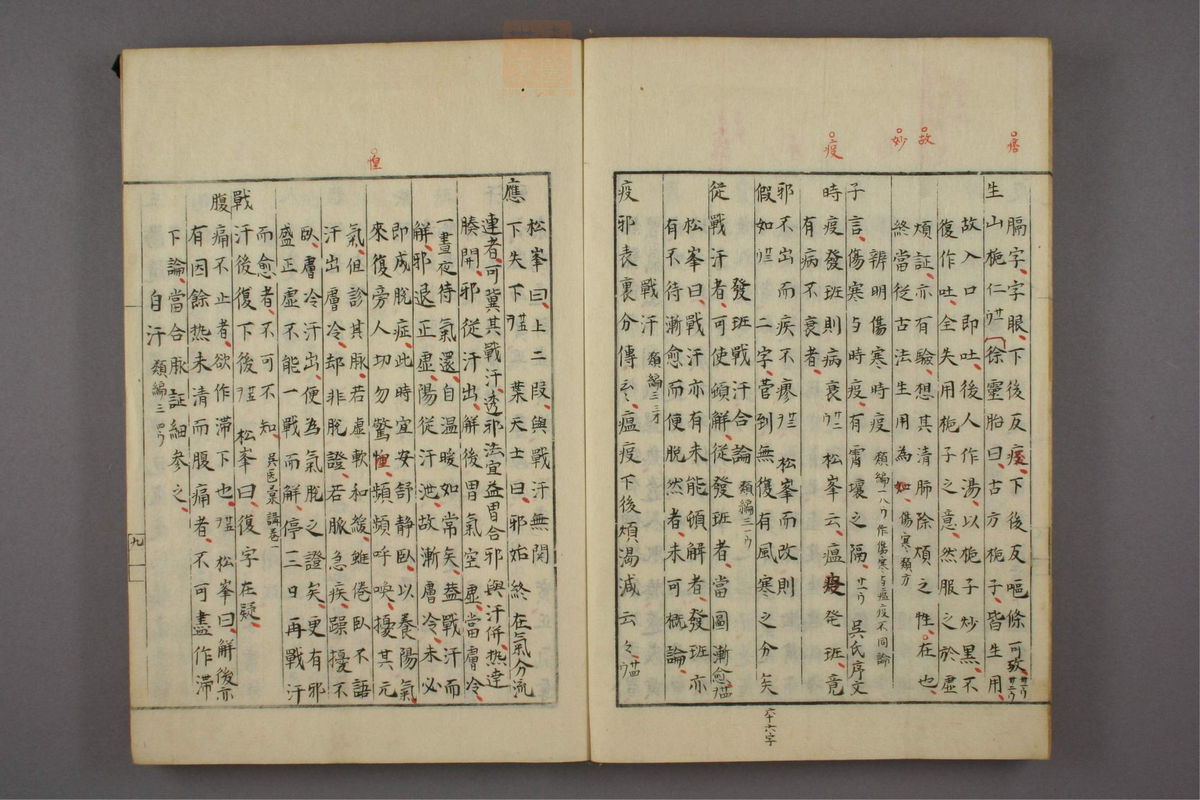 膈字字眼下後反痰下後反嘔條可攷廿二ウ
生山梔仁廿ウ徐靈胎曰古方梔子皆生用
故入口即吐後人作湯以梔子炒黑不
復作吐全失用梔子之意然服之於虛
煩証亦有驗想其清肺除煩之性在也
終當從古法生用為 傷寒類方
辨明傷寒時疫 類編一八ウ作傷寒与瘟疫不同論
子言傷寒与時疫有霄壤之隔廿一ウ 吳氏序文
時疫發班則病衰廿二ウ 松峯云瘟疫発班竟
有病不衰者
邪不出而疾不瘳廿二 松峯而改則
假如廿二ウ二字菅到無復有風寒之分矣
發班戰汗合論 類編三一ウ
從戰汗者可使頓解從發班者當圖漸愈
松峯曰戰汗亦有未能頓解者發班亦
有不待漸愈而便脱然者未可槩論
戰汗 類編三三才
疫邪表裏分傳云々瘟疫下後煩渴減云々廿四ウ
松峯曰上二段與戰汗無関
應下失下 葉天士曰邪始終在氣分流
連者可冀其戰汗透邪法宜益胃合邪與汗併热達
腠開邪從汗出解後胃氣空虛當膚冷
一晝夜待氣還自温暖如常矣葢戰汗而
解邪退正虛陽從汗泄故漸膚冷未必
即成脫症此時宜安舒静卧以養陽氣
來復旁人切勿驚惶頻頻呼喚擾其元
氣但診其脉若虛軟和緩雖倦卧不語
汗出膚冷却非脫證若脈急疾躁擾不
臥膚冷汗出便為氣脫之證矣更有邪
盛正虛不能一戰而解停三日再戰汗
而愈者不可不知 吳医彙講卷一
戰汗後復下後 松峯曰復字在疑
腹痛不止者欲作滯下也 松峯曰解後亦
有因餘热未清而腹痛者不可盡作滞
下論當合脉証細参之
自汗 類編三四ウ
故
妙
疫
惶
六十六字
九